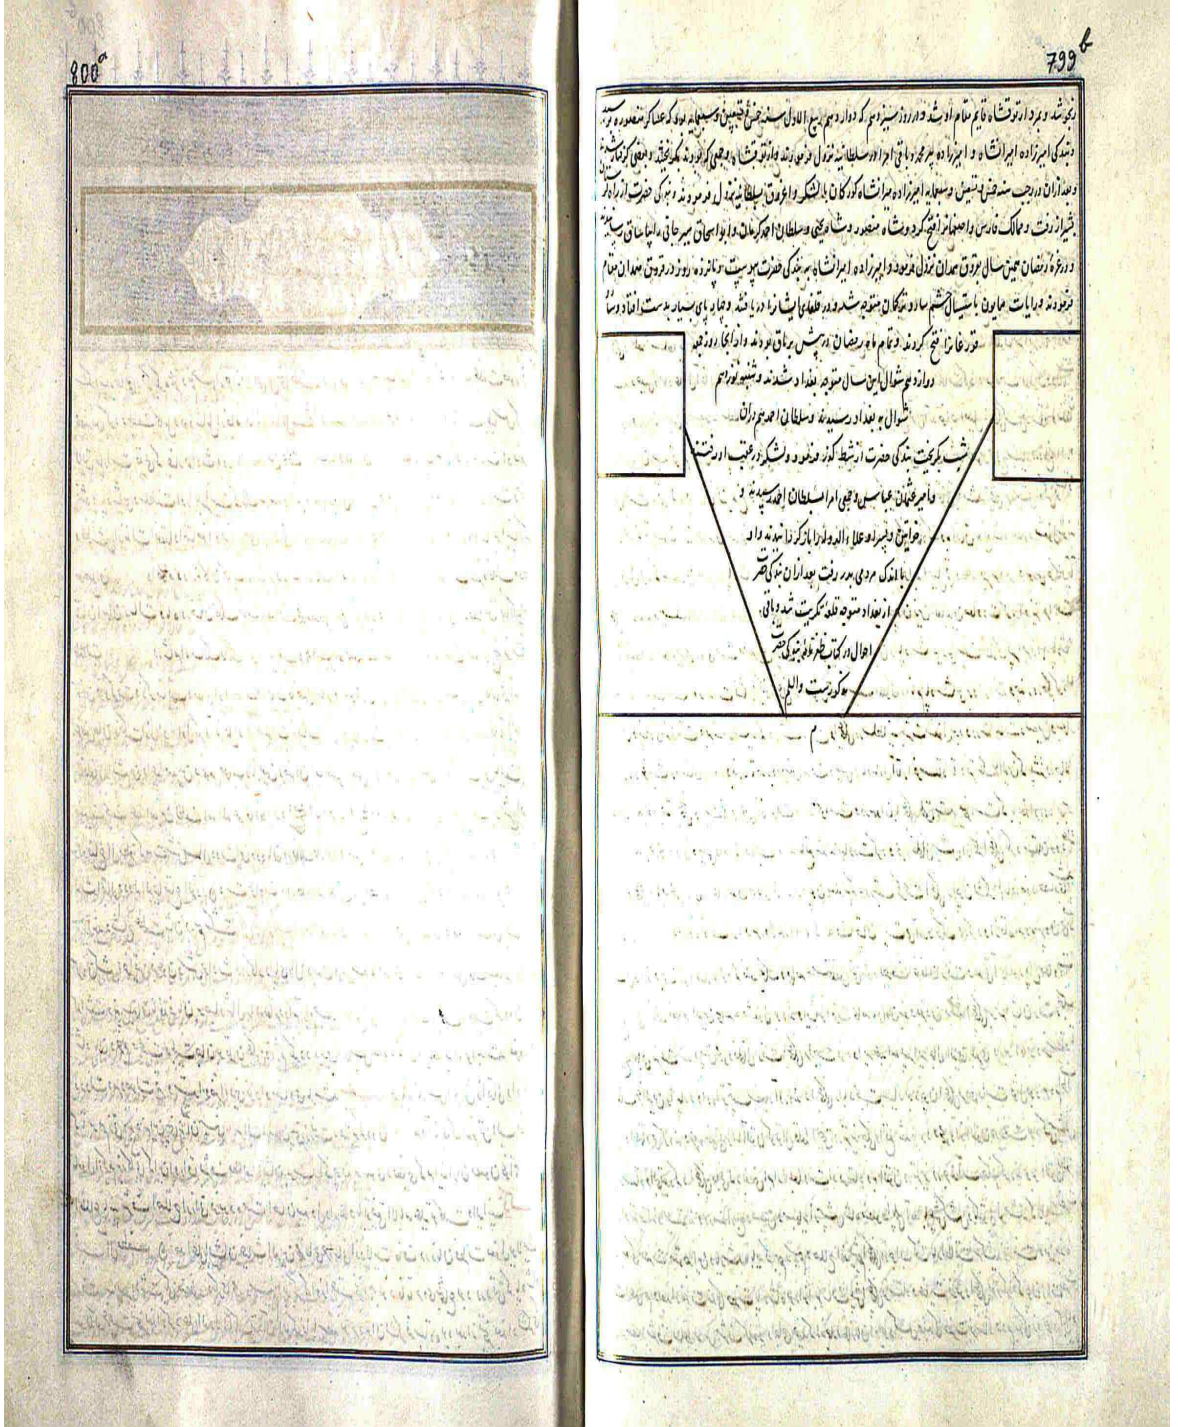 799 b
رنجور شد و بمرد از توقتشاه قایم مقام او شد و در روز سیزدهم که دوازدهم ربیع الاول سنه خمس و تسعین و سبعمایه بود که عساکر منصوره
بندکی امیرزاده امیرانشاه و امیرزاده پیر محمد و باقی امرا در سلطانیه نزول فرمودند و از توقتشاه جمعی که بودند بکریختند و بعضی گرفتار شدند
و بعد ازان در رجب سنه خمس و تسعین و سبعمایه امیرزاده میرانشاه کورکان با لشکر و اغروق بسلطانیه نزول فرمودند و بندکی حضرت از راه
شیراز رفت و ممالک فارس و اصفهان را فتح کرد و شاه منصور و شاه یحیی و سلطان احمد کرمان و ابو اسحاق سیرجانی را بیاساق رسانید
و در غره رمضان همین سال بقروق همدان نزول فرمود و امیرزاده امیرانشاه به بندکی حضرت پیوست و پانزده روز در قروق همدان مقام
فرمودند و رایات همایون باستیصال حشم سارو ترکمان متوجه شد و در قلعه ایشانرا دریافتند و چهارپای بسیار بدست افتاد و
قورغانرا فتح کردند و تمام ماه رمضان در پیش براق بودند و از آنجا روز جمعه
دوازدهم شوال این سال متوجه بغداد شدند و شنبه نوزدهم
شوال به بغداد رسیدند و سلطان احمد هم دران
شب بکریخت بندکی حضرت از شط گذر فرمود و لشکر در عقب او رفتند
و امیر عثمان عباسی و جمعی امرا بسلطان احمد رسیدند و
خواتین و پسر او علاء الدوله را باز گردانیدند و او
با اندک مردمی بدر رفت بعد ازان بندکی حضرت
از بغداد متوجه قلعه تکریت شد و باقی
احوال در کتاب ظفر نامه بندکی حضرت
مذکورست والسلم
م
800 a